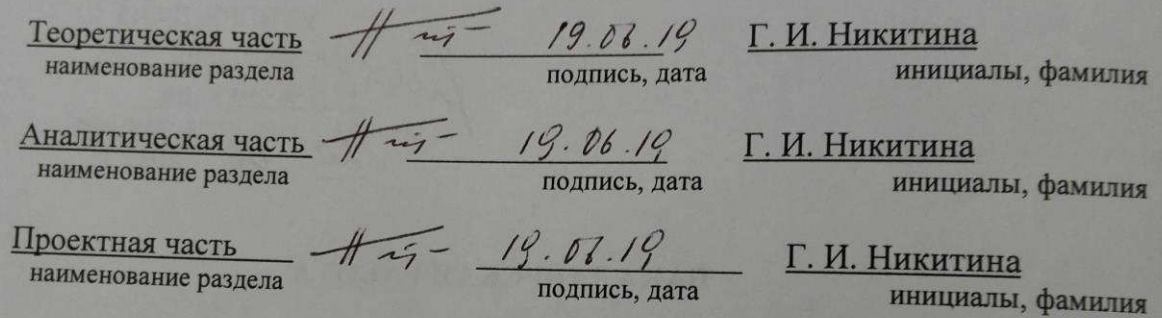 Теоретическая часть 19.06.19 Г. И. Никитина
наименование раздела подпись, дата инициалы, фамилия
Аналитическая часть 19.06.19 Г. И. Никитина
наименование раздела подпись, дата инициалы, фамилия
Проектная часть 19.06.19 Г. И. Никитина
наименование раздела подпись, дата инициалы, фамилия